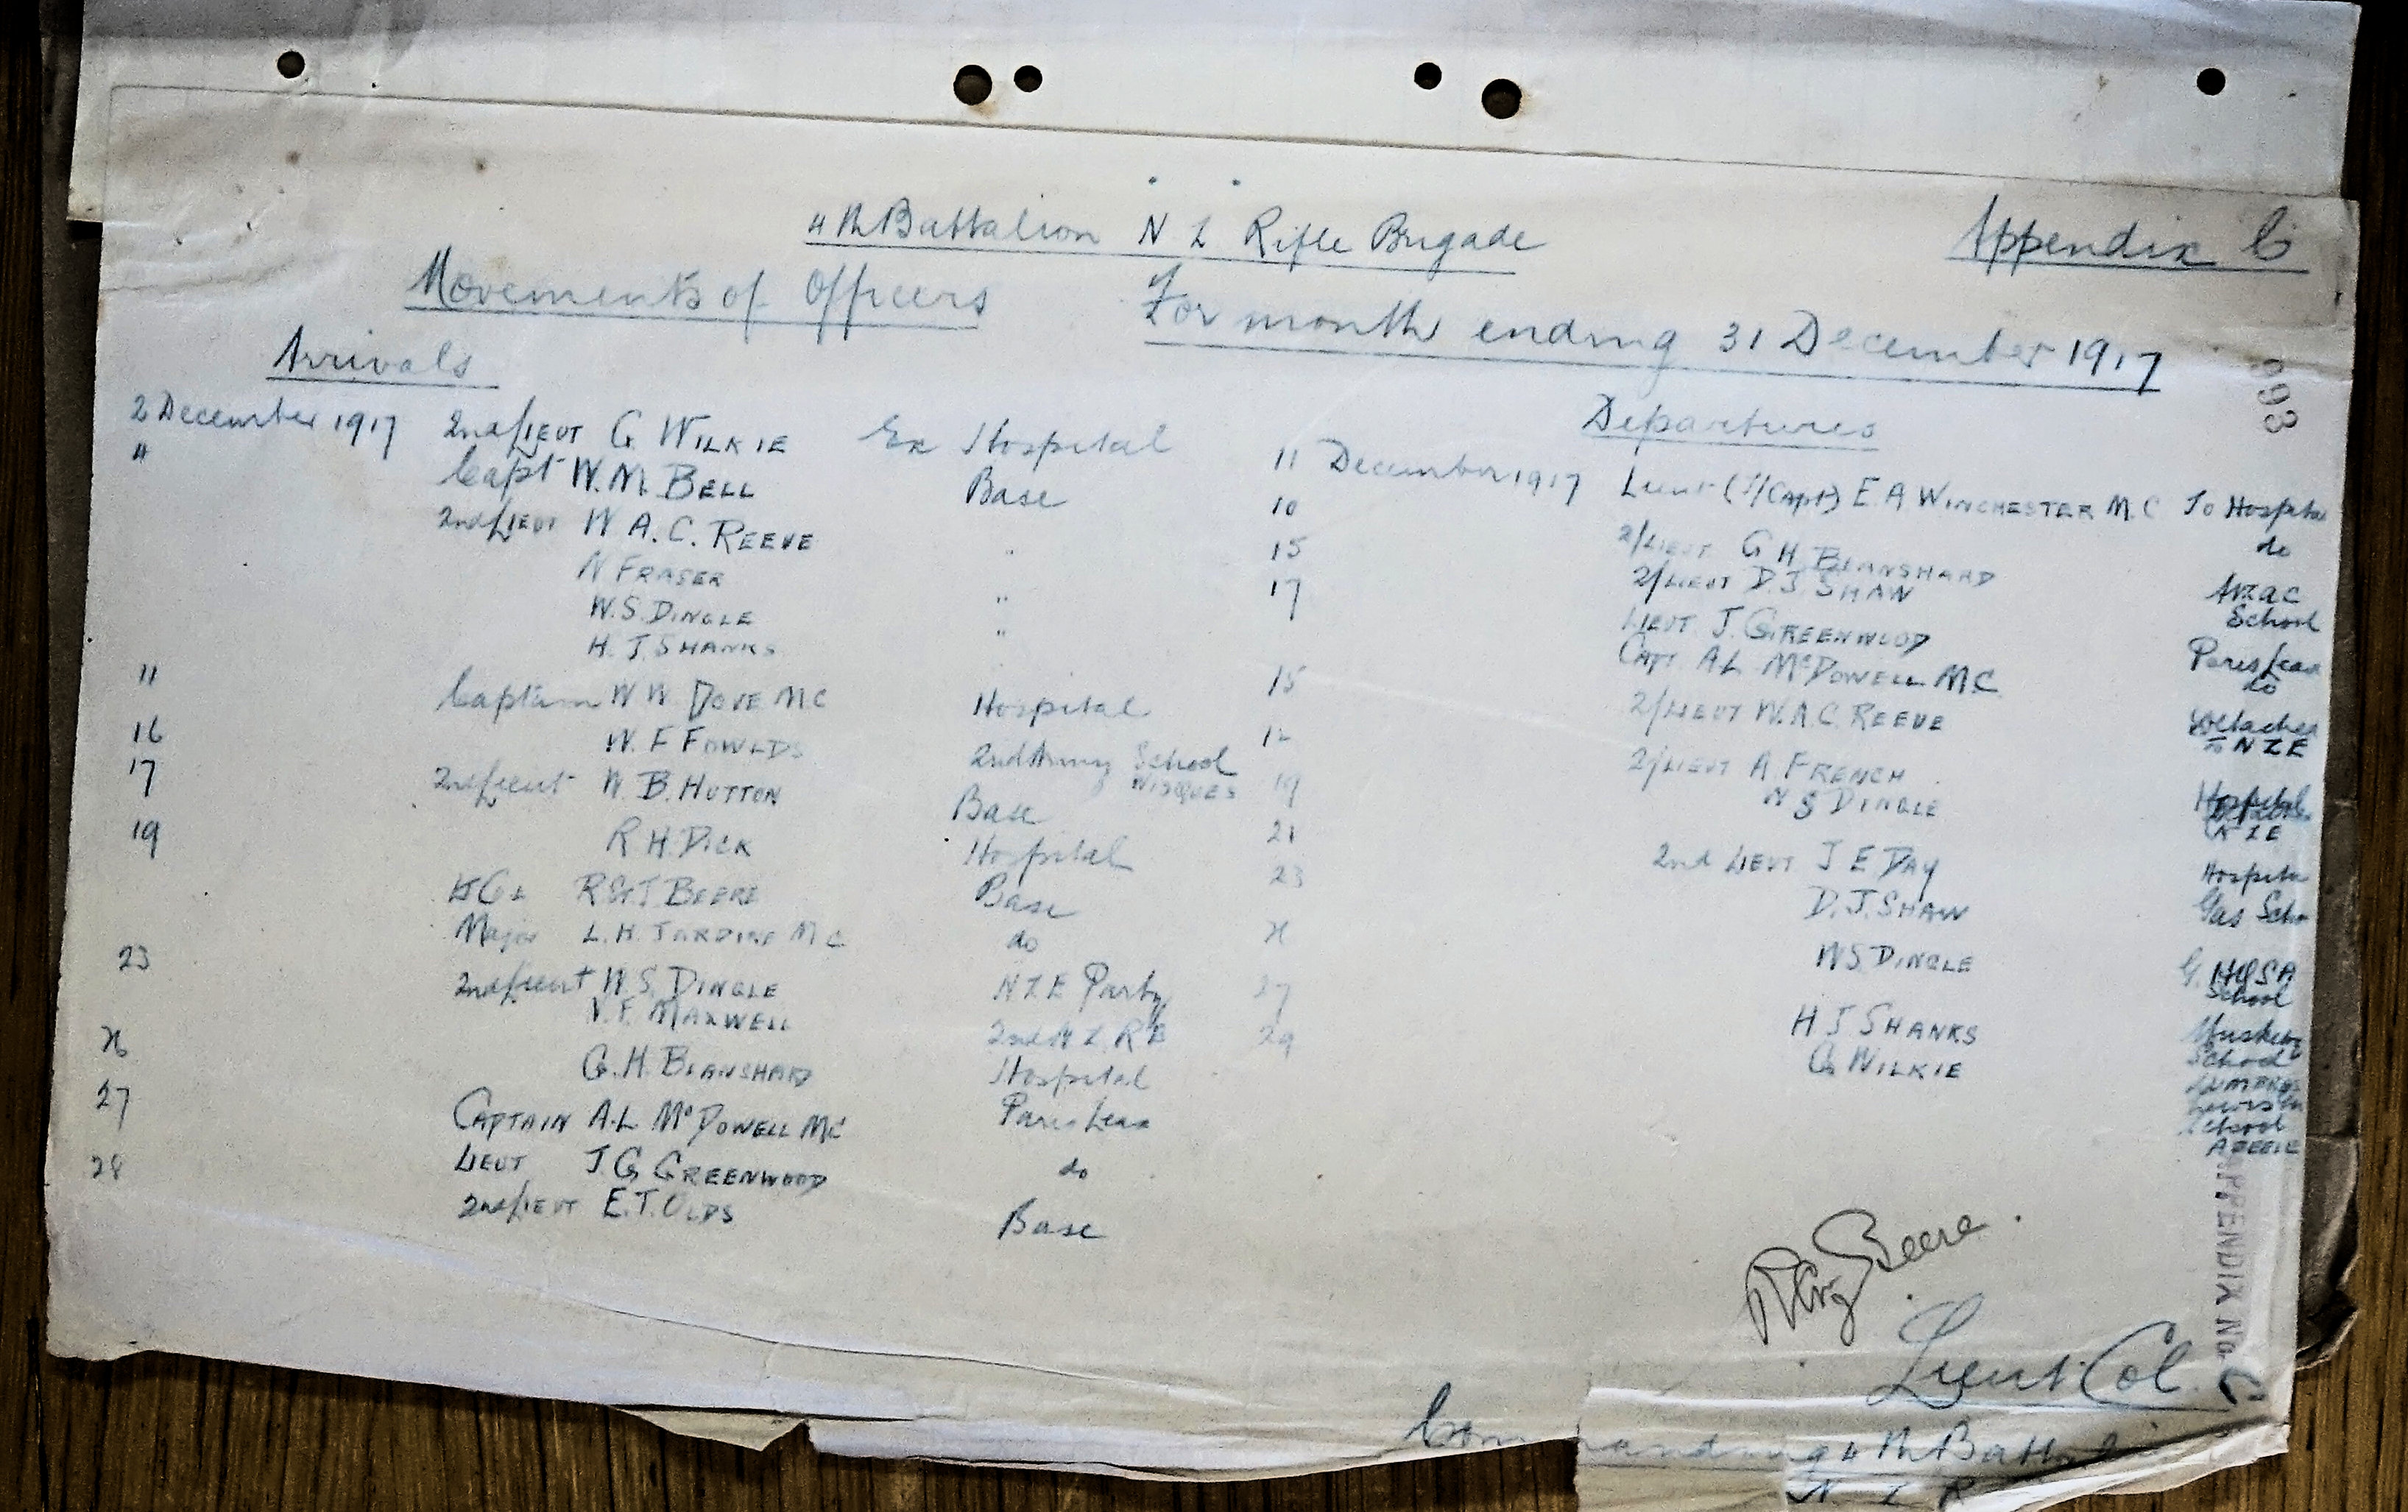 4th Battalion N Z Rifle Brigade
Appendix C
Movements of Officers For month ending 31 December 1917
Arrivals
2 December 1917 2nd Lieut G WILKIE Ex Hospital
" Capt W.M. BELL Base
2nd Lieut W A.C. REEVE "
N FRASER
W.S. DINGLE "
H.J. SHANKS "
11 Captain W W DOVE MC Hospital
16 W.F FOWLDS 2nd Army School
WISQUES
17 2nd Lieut W.B. HUTTON Base
19 R H. DICK Hospital
Lt Col R St J BEERE Base
Major L.H. JARDINE MC do
23 2nd Lieut W.S. DINGLE NZE Party
V.F. MAXWELL 2nd N.Z.R B
26 G.H. BLANSHARD Hospital
27 CAPTAIN A.L McDOWELL MC Paris Leave
LIEUT J.G GREENWOOD do
28 2nd LIEUT E.T. OLDS Base
Departures
11 December 1917 Lieut (T/Capt) E.A WINCHESTER M.C To Hospital
10 2/LIEUT G H BLANSHARD do
15 2/LIEUT D.J SHAW Anzac
School
17 LIEUT J. GREENWOOD Paris Leave
CAPT. A L McDOWELL MC do
15 2/LIEUT W.A.C. REEVE Detached
to NZE
2/LIEUT A. FRENCH Hospital
19 W S DINGLE NZE
21 2nd LIEUT J E DAY Hospital
23 D.J. SHAW Gas Scho
26 W S DINGLE G.
School
27 H J SHANKS Musketry
School
LUMBRES
29 G WILKIE Lewis Gn
School
Beere
Lieut. Col.
Commanding 4th Battalion
N Z R
093
APPENDIX No. C